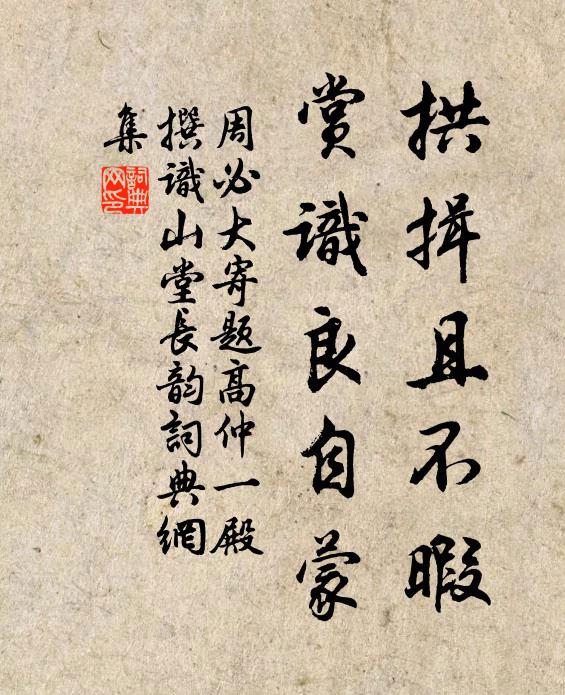 拱揖且不暇
賞識良自蒙
周必大寄題高仲一殿
撰識山堂長韵詞典網
集
詞典网印